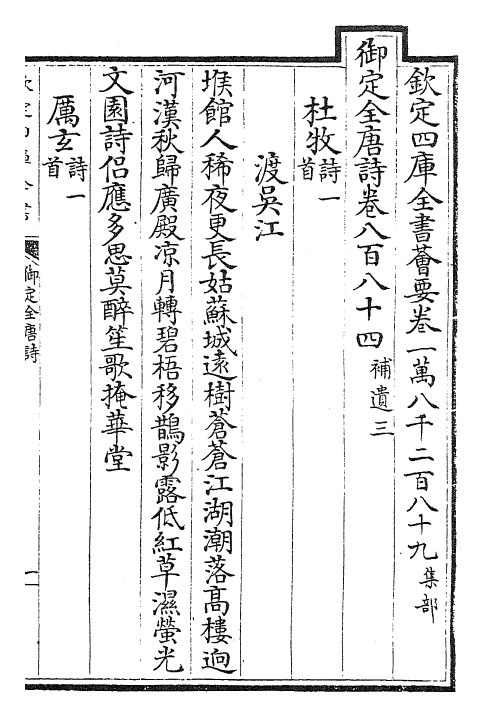 欽定四庫全書薈要卷一萬八千二百八十九 集部
御定全唐詩卷八百八十四 補遺三
杜牧 詩一首
渡吳江
堠館人稀夜更長姑蘇城遠樹蒼蒼江湖潮落高樓迥
河漢秋歸廣殿凉月轉碧梧移鵲影露低紅草濕螢光
文園詩侶應多思莫醉笙歌掩華堂
厲玄 詩一首
御定全唐詩